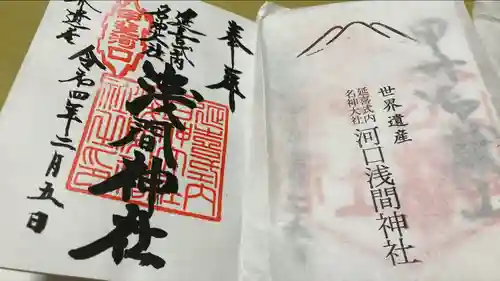 奉拝
延喜式内
名神大社
浅間神社
世界遺産
令和四年二月五日
世界遺産
延喜式内
名神大社
河口浅間神社